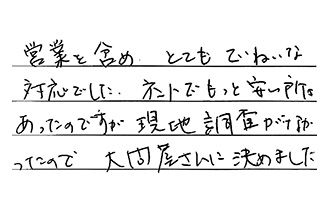 営業を含め、とてもていねいな
対応でした。ネットでもっと安い所は
あったのですが現地調査がなか
ったので 大間屋さんに決めました